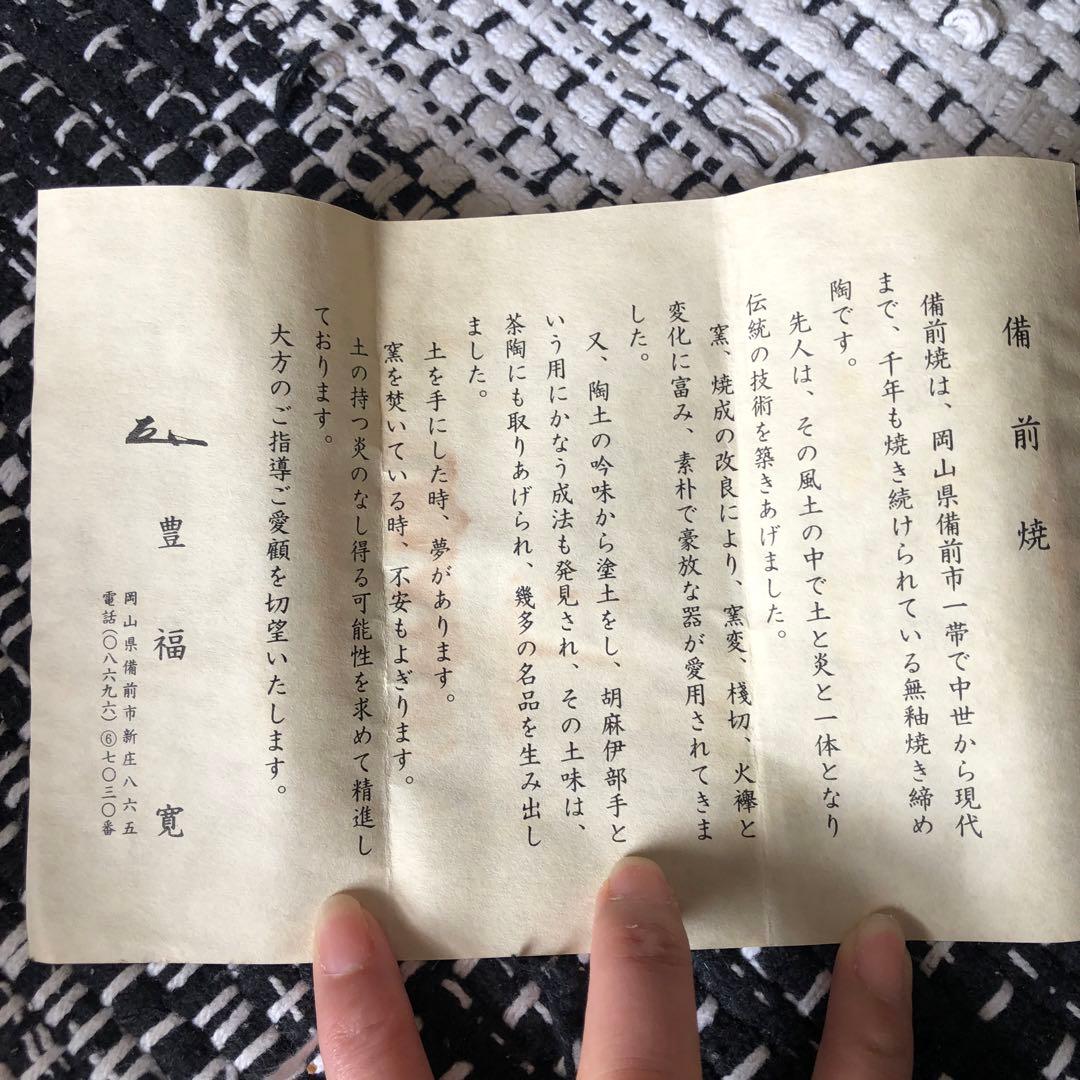 備前焼
備前焼は、岡山県備前市一帯で中世から現代
まで、千年も焼き続けられている無釉焼き締め
陶です。
先人は、その風土の中で土と炎と一体となり
伝統の技術を築きあげました。
窯、焼成の改良により、窯変、棧切、火襷と
変化に富み、素朴で豪放な器が愛用されてきま
した。
又、陶土の吟味から塗土をし、胡麻伊部手と
いう用にかなう成法も発見され、その土味は、
茶陶にも取りあげられ、幾多の名品を生み出し
ました。
土を手にした時、夢があります。
窯を焚いている時、不安もよぎります。
土の持つ炎のなし得る可能性を求めて精進し
ております。
大方のご指導ご愛顧を切望いたします。
豊福寛
岡山県備前市新庄八六五
電話(〇八六九六)⑥七〇三〇番